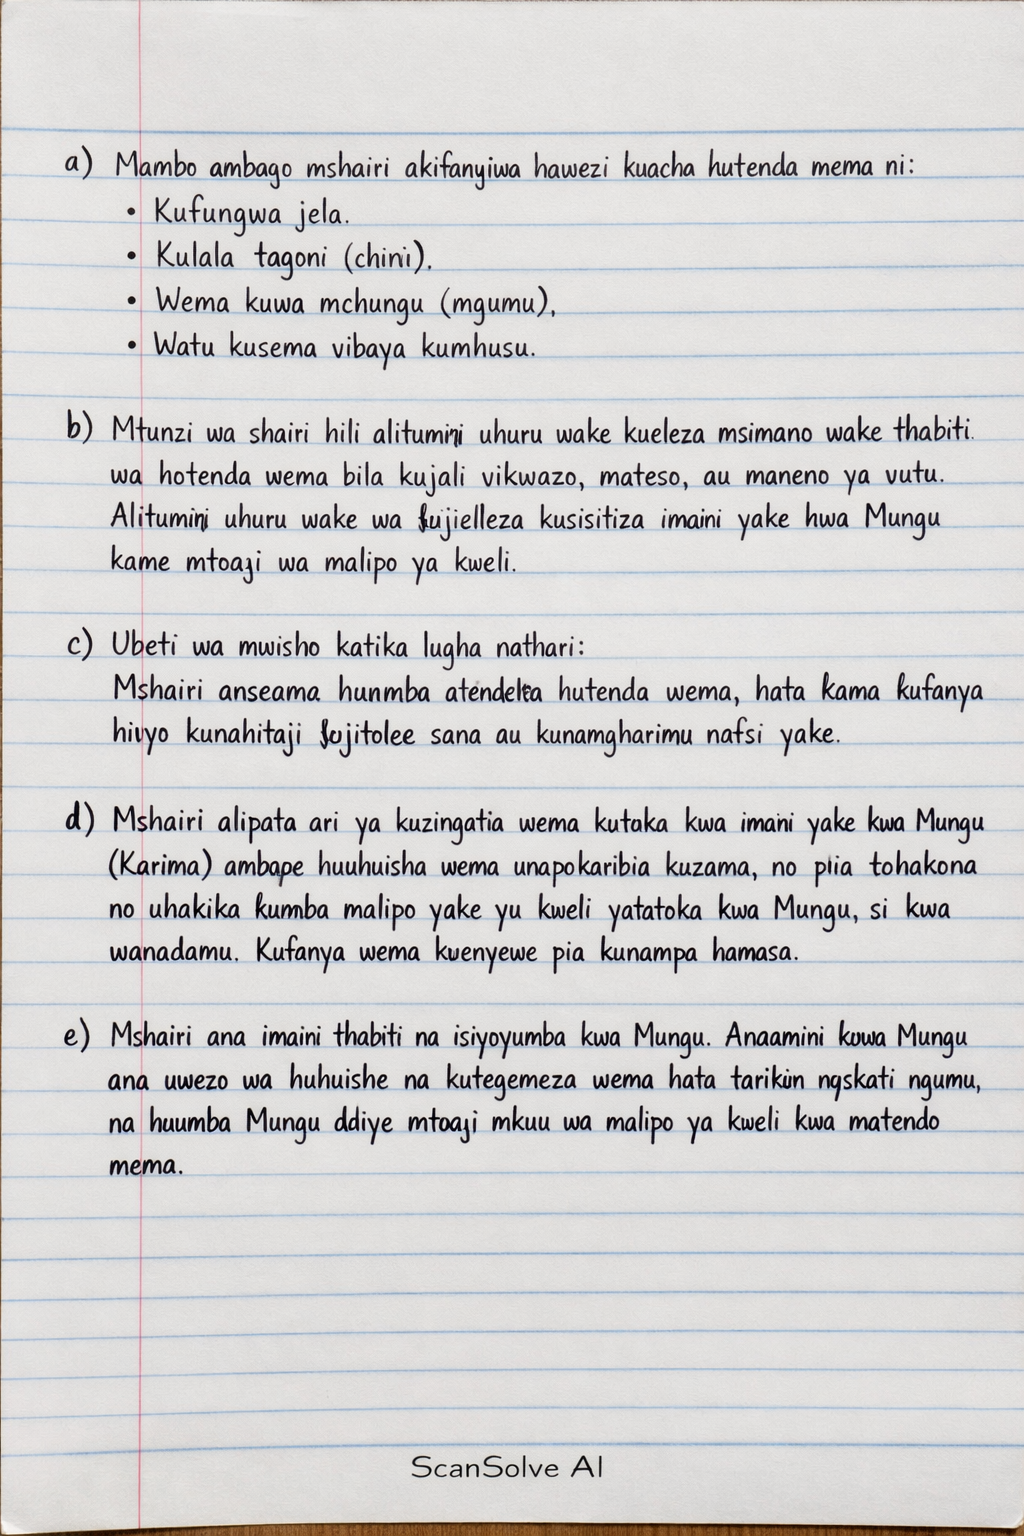 a) Mambo ambago mshairi akifanyiwa hawezi kuacha hutenda mema ni:
• Kufungwa jela.
• Kulala tagoni (chini).
• Wema kuwa mchungu (mgumu),
• Watu kusema vibaya kumhusu.
b) Mtunzi wa shairi hili alitumini uhuru wake kueleza msimano wake thabiti.
wa hotenda wema bila kujali vikwazo, mateso, au maneno ya vutu.
Alitumini uhuru wake wa kujielleza kusisitiza imaini yake hwa Mungu
kame mtoaji wa malipo ya kweli.
c) Ubeti wa mwisho katika lugha nathari:
Mshairi anseama hunmba atendelea hutenda wema, hata kama kufanya
hivyo kunahitaji kujitolee sana au kunamgharimu nafsi yake.
d) Mshairi alipata ari ya kuzingatia wema kutoka kwa imani yake kwa Mungu
(Karima) ambape huuhuisha wema unapokaribia kuzama, no piia tohakona
no uhakika kumba malipo yake yu kweli yatatoka kwa Mungu, si kwa
wanadamu. Kufanya wema kwenyewe pia kunampa hamasa.
e) Mshairi ana imaini thabiti na isiyoyumba kwa Mungu. Anaamini kuwa Mungu
ana uwezo wa huhuishe na kutegemeza wema hata tarikun ngskati ngumu,
na huumba Mungu ddiye mtoaji mkuu wa malipo ya kweli kwa matendo
mema.
ScanSolve AI